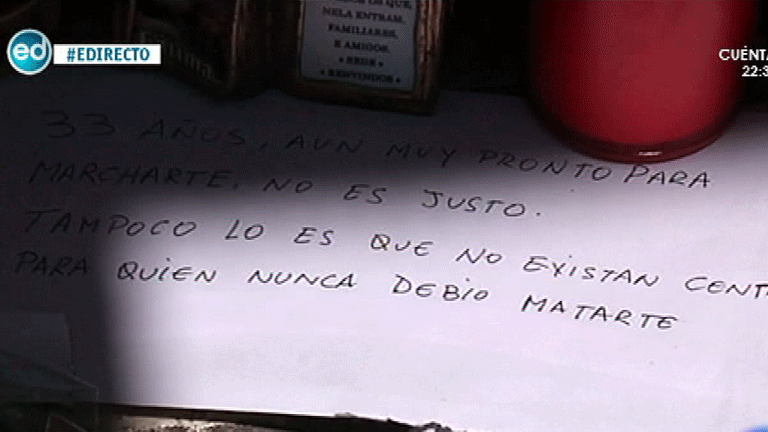 ed #EDIRECTO
CUÉNTA
22:3
NELA ENTRAM,
FAMILIARES,
E AMIGOS.
• SEDE •
• BENVINDOS •
33 AÑOS, AUN MUY PRONTO PARA
MARCHARTE. NO ES JUSTO.
TAMPOCO LO ES QUE NO EXISTAN CENT
PARA QUIEN NUNCA DEBIO MATARTE